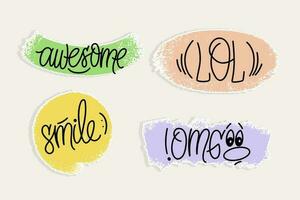 awesome
((LOL))
smile)
!OMG